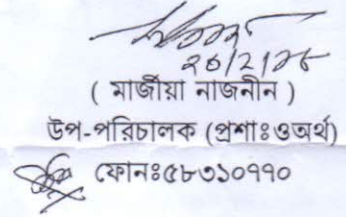 ২৬/২/১৮
( মার্জীয়া নাজনীন )
উপ-পরিচালক (প্রশাঃওঅর্থ)
ফোনঃ৫৮৩১০৭৭০